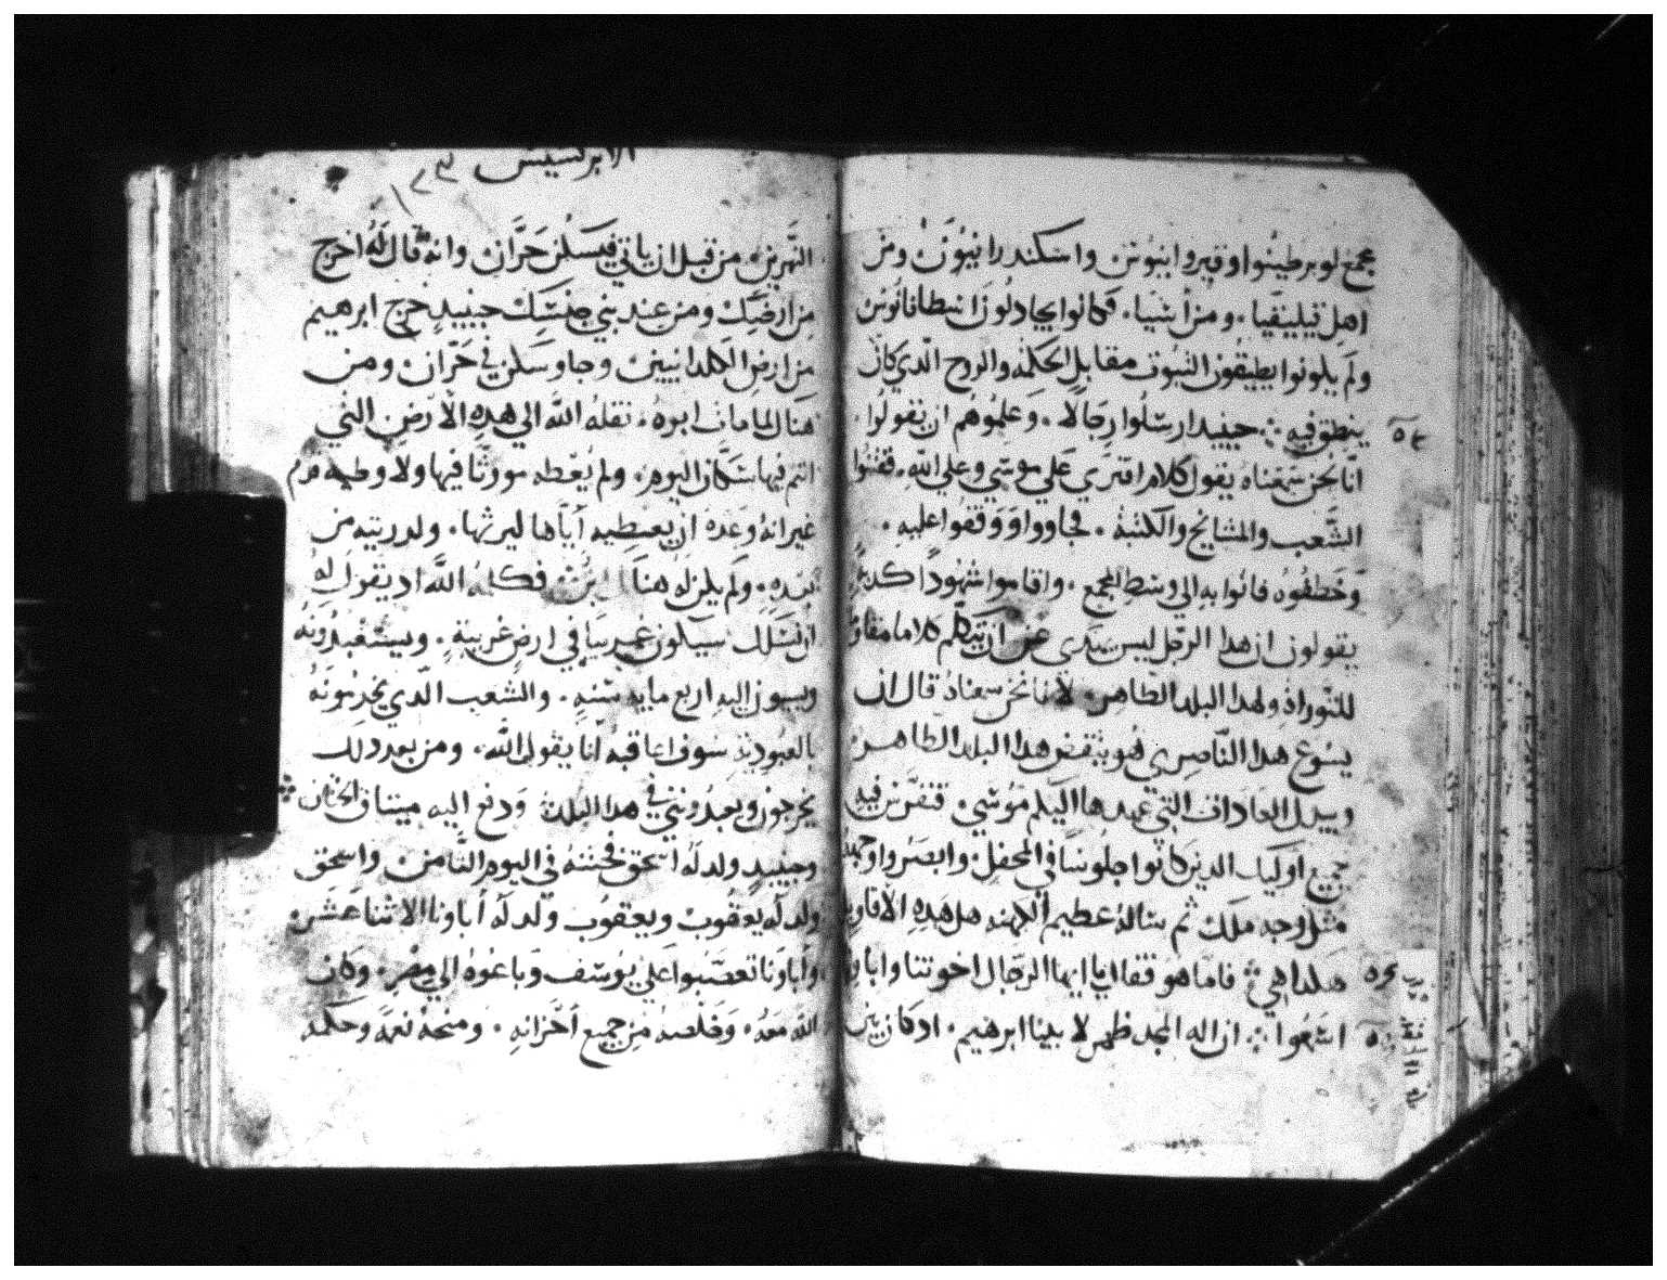 مجمع لوبرطينوا وقيروانيوت واسكندرانيون ومن
اهل قيليقيا. ومن أسيا. فكانوا يجادلون اسطافانوس
ولم يكونوا يطيقون الثبوت مقابل الحكمه والروح الدي كان
ينطق فيه حينيد ارسلوا رجالا. وعلموهم ان يقولوا
انا نحن سمعناه يقول كلام افتري علي موسي وعلي الله. ففتنوا
الشعب والمشايخ والكتبة. فجاووا ووقفوا عليه.
وخطفوه فاتوا به الي وسط المجمع. واقاموا شهودا كدبة
يقولون ان هدا الرجل ليس يهدى عن ان يتكلم كلاما مقاوم
للتوراة ولهدا البلد الطاهر. لاننا نحن سمعناه قال ان
يسوع هدا الناصري هو ينقض هدا البلد الطاهر
ويبدل العادات التي عهدها اليكم موسي. فتفرس فيه
جميع اوليك الدين كانوا جلوسا في المحفل. وابصروا وجهه
مثل وجه ملك ثم ساله عظيم الكهنه هل هده الاقاويل
هكدا هي فاما هو فقال يا ايها الرجال اخوتنا وابانا
اسمعوا ان اله المجد ظهر لابينا ابرهيم. اد كان بين
الابركسيس ١٢٣
النهرين. من قبل ان ياتي فيسكن حران وانه قال له اخرج
من ارضك ومن عند بني جنسك حينيد خرج ابرهيم
من ارض الكلدانيين وجا وسكن في حران ومن
هناك لما مات ابوه. نقله الله الي هده الارض التي
انتم فيها سكان اليوم. ولم يعطه مورثا فيها ولا وطيه قدم
غير انه وعده ان يعطيه أياها ليرثها. ولدريته من
بعده. ولم يكن له هناك ابن فكلمه الله اد يقول له
ان نسلك سيكون غريبا في ارض غريبة. ويستعبدونه
ويسيون اليه اربع مايه سنه. والشعب الدي يخدمونه
بالعبودية سوف اعاقبه أنا يقول الله. ومن بعد دلك
يخرجون ويعبدونني في هدا البلد ودفع اليه ميتاق الختان
وحينيد ولد له اسحق فختنه في اليوم التامن. واسحق
ولد له يعقوب ويعقوب ولد له أباونا الاتنا عشر.
وأباونا تعصبوا علي يوسف وباعوه الي مصر. وكان
الله معه. وخلصه من جميع أحزانه. ومنحه نعمة وحكمة